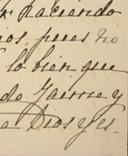 haciendo
nos, pues no
lo bien que
do Jaime y
a Dios y es